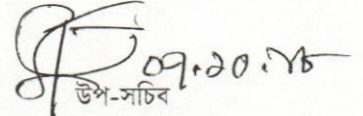 ০৭.১০.১৮
উপ-সচিব